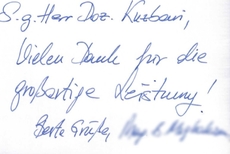 S.g. Herr Doz. Kuzbari,
Vielen Dank für die
großartige Leistung!
Beste Grüße,